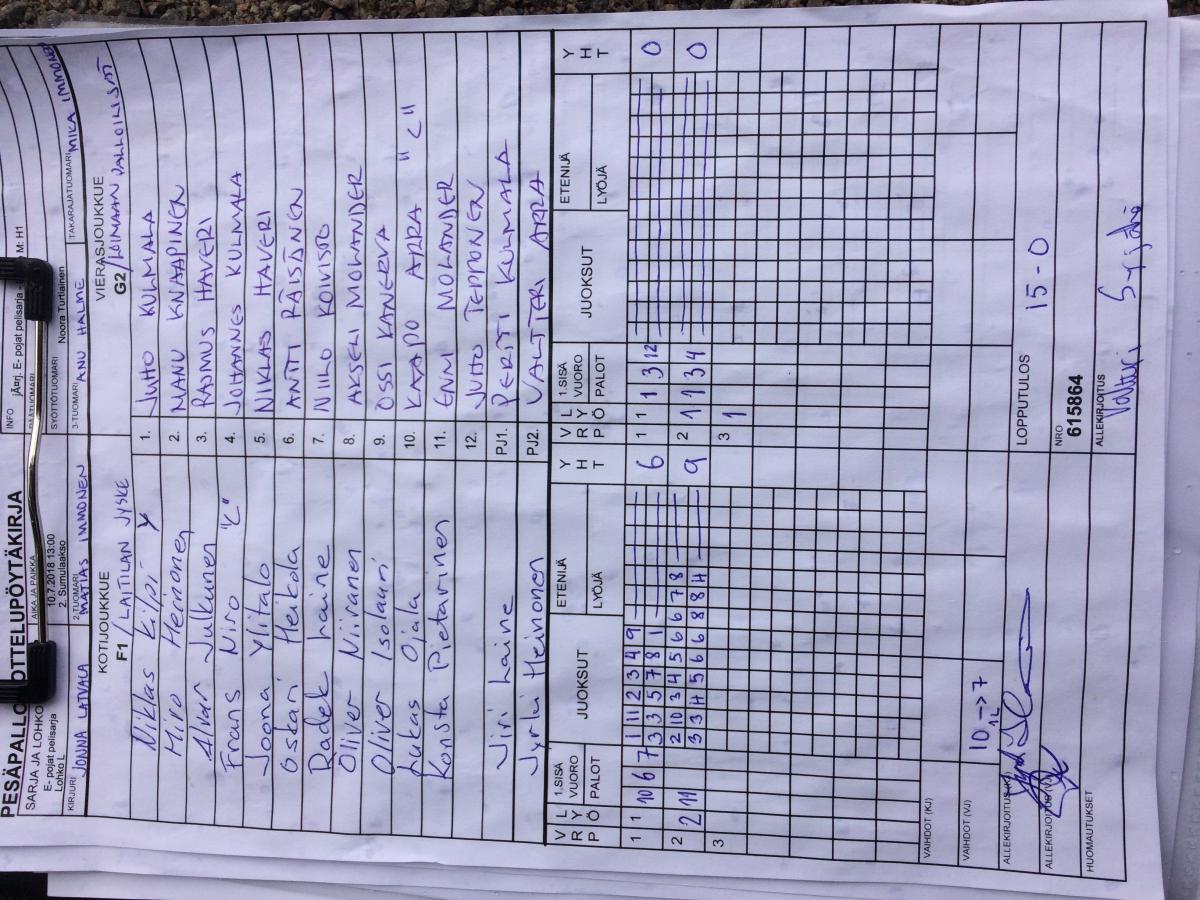 PESÄPALLO OTTELUPÖYTÄKIRJA
SARJA JA LOHKO
E- pojat pelisarja
Lohko L
AIKA JA PAIKKA
10.7.2018 13:00
2. Sumulaakso
INFO
jÃ¤rj. E- pojat pelisarja - M: H1
SYÖTTÖTUOMARI
Noora Turtiainen
KIRJURI JONNA LATVALA
2-TUOMARI MATIAS IMMONEN
3-TUOMARI ANU HALME
TAKARAJATUOMARI MIKA IMMONEN
KOTIJOUKKUE
F1 / LAITILAN JYSKE
VIERASJOUKKUE
G2 / LOIMAAN PALLOILIJAT
Niklas Kilpi 1. JUHO KULMALA
Miro Heinonen 2. MANU KNAAPINEN
Alvari Julkunen 3. RASMUS HAVERI
Frans Niro "C" 4. JOHANNES KULMALA
Joona Ylitalo 5. NIKLAS HAVERI
Oskari Heikola 6. ANTTI RÄISÄNEN
Radek Laine 7. NIILO KOIVISTO
Oliver Niiranen 8. AKSELI MOLANDER
Oliver Isolauri 9. OSSI KANERVA
Lukas Ojala 10. KAAPO ARRA "C"
Konsta Pietarinen 11. ENNI MOLANDER
12. JUHO TEPPONEN
Jiri Laine PJ1. PERTTI KULMALA
Jyrki Heinonen PJ2. VALTTERI ARRA
V R P L Y Ö 1.SISÄ VUORO PALOT JUOKSUT ETENIJÄ LYÖJÄ Y H T
V R P L Y Ö 1.SISÄ VUORO PALOT JUOKSUT ETENIJÄ LYÖJÄ Y H T
1 1 10 6 7 1 11 2 3 4 9 6 1 1 1 3 12 0
3 3 5 7 8 1
2 2 11 2 10 3 4 5 6 6 7 8 9 2 1 1 3 4 0
3 3 4 5 6 6 8 8 4
3 3 1
VAIHDOT (KJ)
VAIHDOT (VJ) 10 → 7
1L
LOPPUTULOS 15 - 0
ALLEKIRJOITUS (KJ)
ALLEKIRJOITUS (VJ)
NRO
615864
HUOMAUTUKSET
ALLEKIRJOITUS